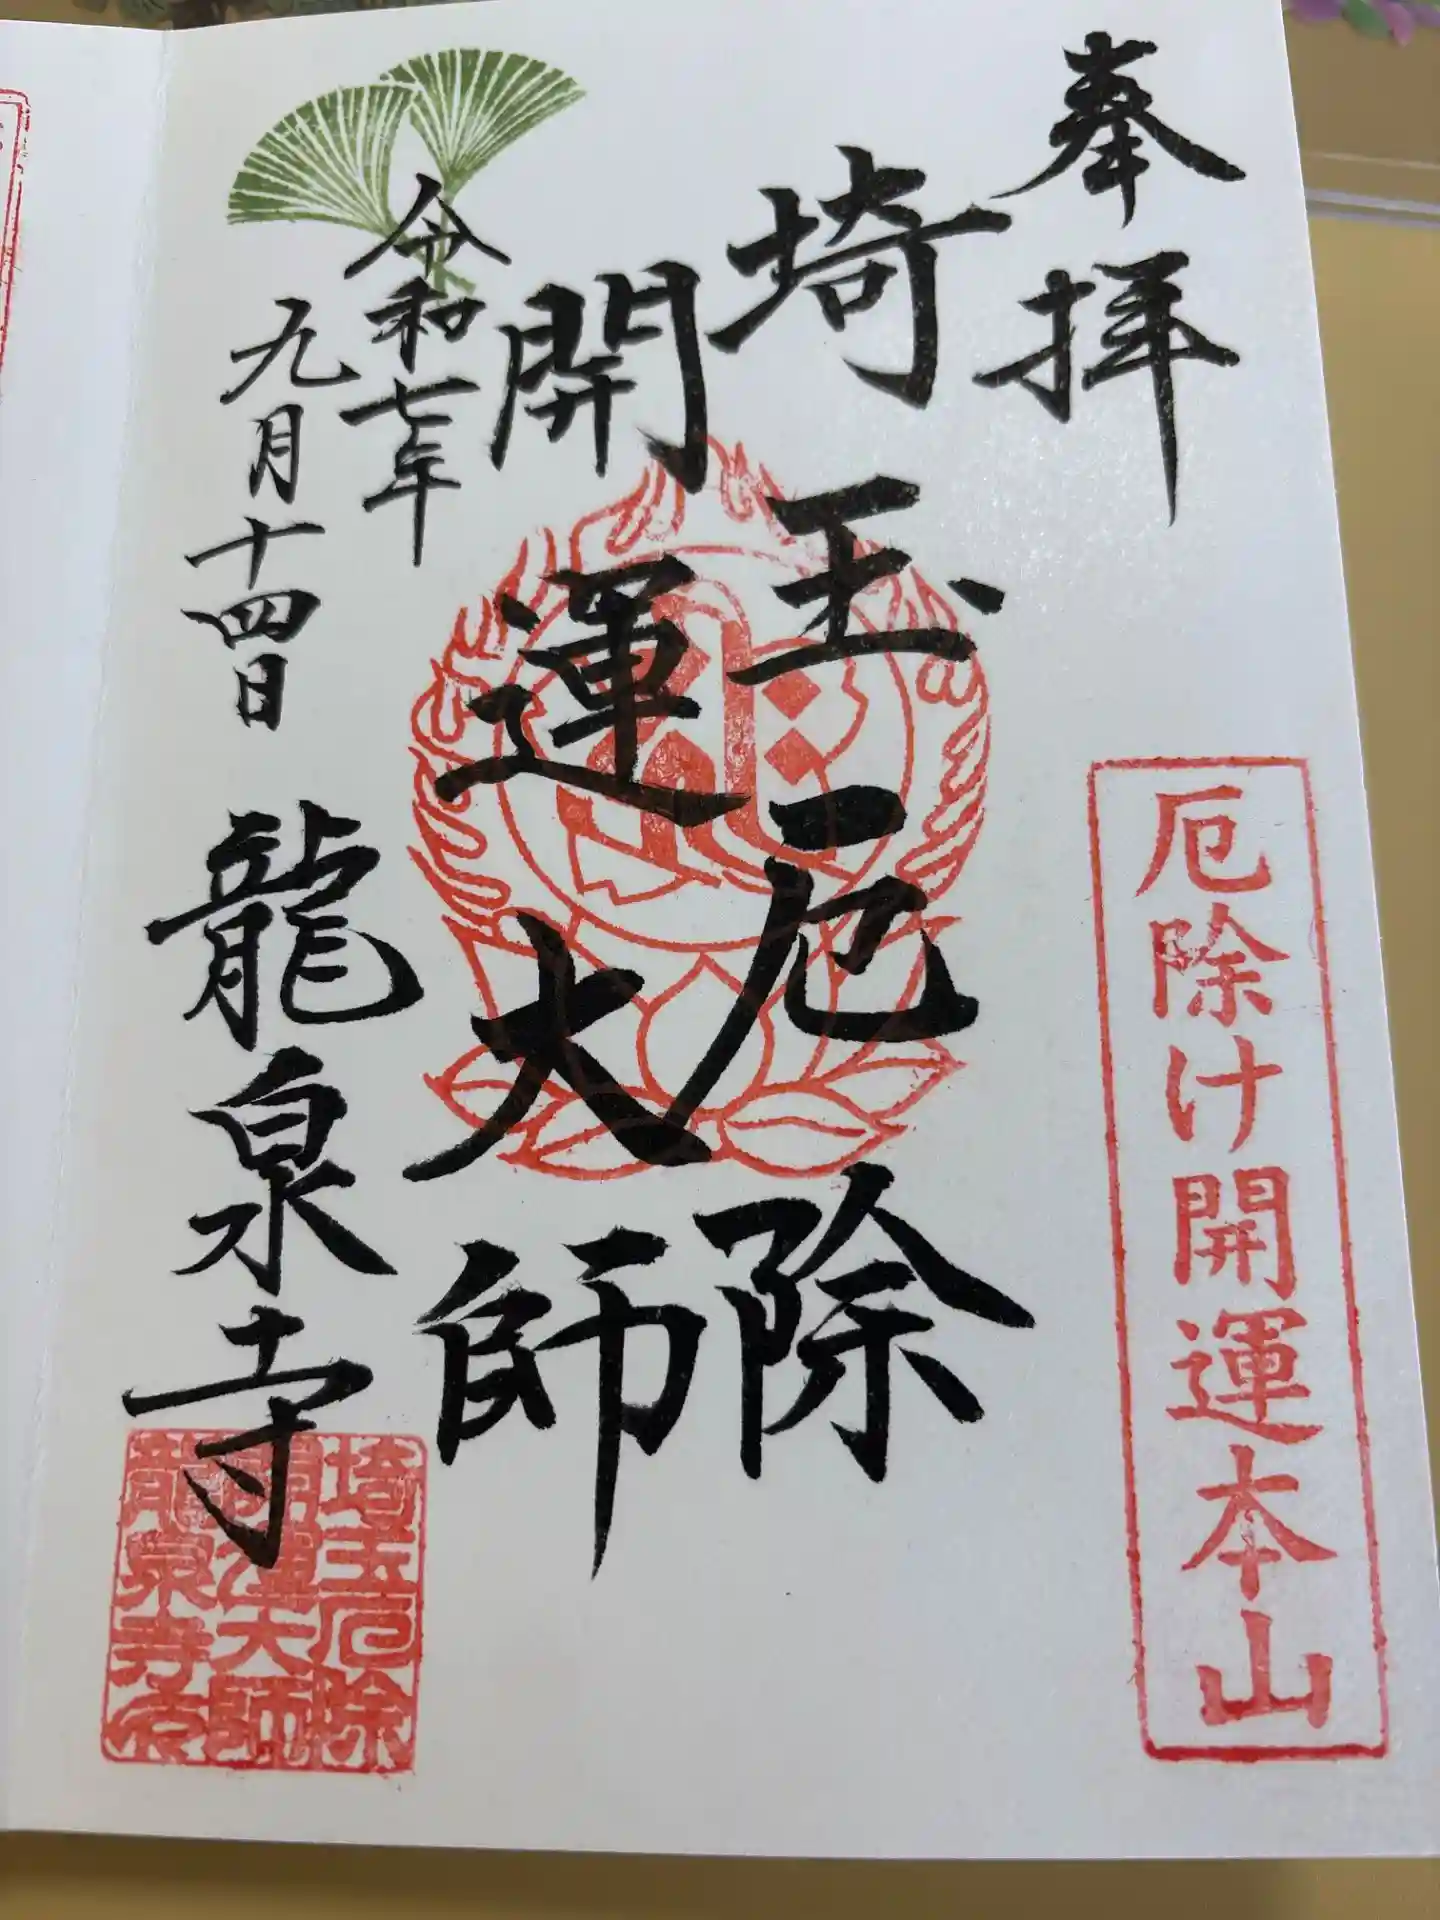 奉拝
厄除け開運本山
埼玉厄除
開運大師
令和七年
九月十四日
龍泉寺
埼玉厄除
開運大師
龍泉寺印